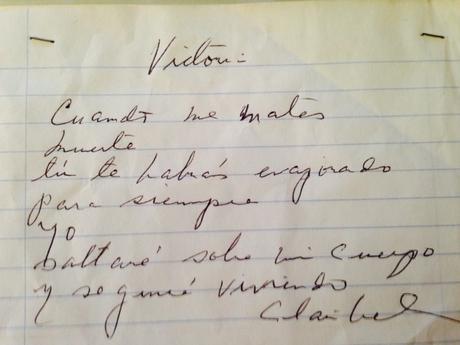 Victor:
Cuando me mates
muerte
tú te habrás evaporado
para siempre
yo
saltaré sobre mi cuerpo
y seguiré viviendo
Claribel